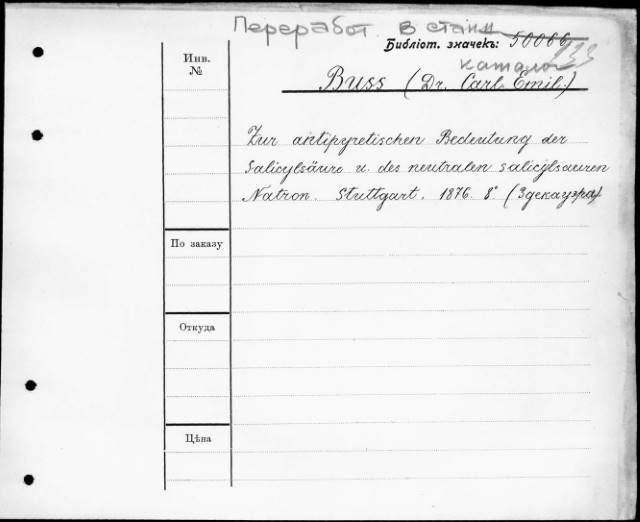 Переработ. в станд.
Библіот. значекъ: 50066
каталог 133
Инв.
№
Buss (Dr. Carl Emil.)
Zur antipyretischen Bedeutung der
Salicylsäure u. des neutralen salicylsauren
Natron. Stuttgart. 1876. 8°. (3 декауэра)
По заказу
Откуда
Цѣна